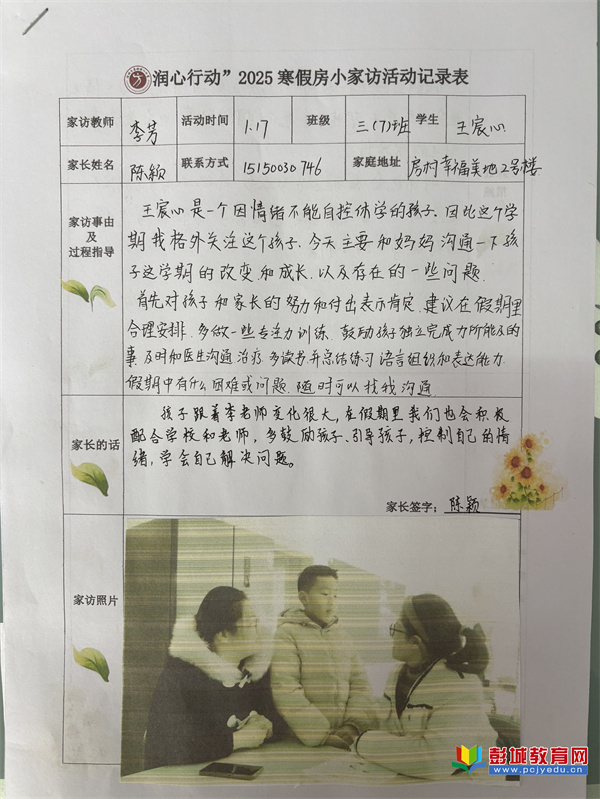 润心行动”2025寒假房小家访活动记录表
家访教师 李芳 活动时间 1.17 班级 三(7)班 学生 王宸心
家长姓名 陈颖 联系方式 15150030746 家庭地址 房村幸福美地2号楼
家访事由
及
过程指导
王宸心是一个因情绪不能自控休学的孩子.因此这个学
期我格外关注这个孩子.今天主要和妈妈沟通一下孩
子这学期的改变和成长.以及存在的一些问题.
首先对孩子和家长的努力和付出表示肯定.建议在假期里
合理安排.多做一些专注力训练.鼓励孩子独立完成力所能及的
事.及时和医生沟通治疗.多读书并总结练习语言组织和表达能力.
假期中有什么困难或问题.随时可以找我沟通.
家长的话
孩子跟着李老师变化很大,在假期里我们也会积极
配合学校和老师,多鼓励孩子、引导孩子,控制自己的情
绪,学会自己解决问题。
家长签字:陈颖
家访照片
彭城教育网
www.pcjyedu.cn